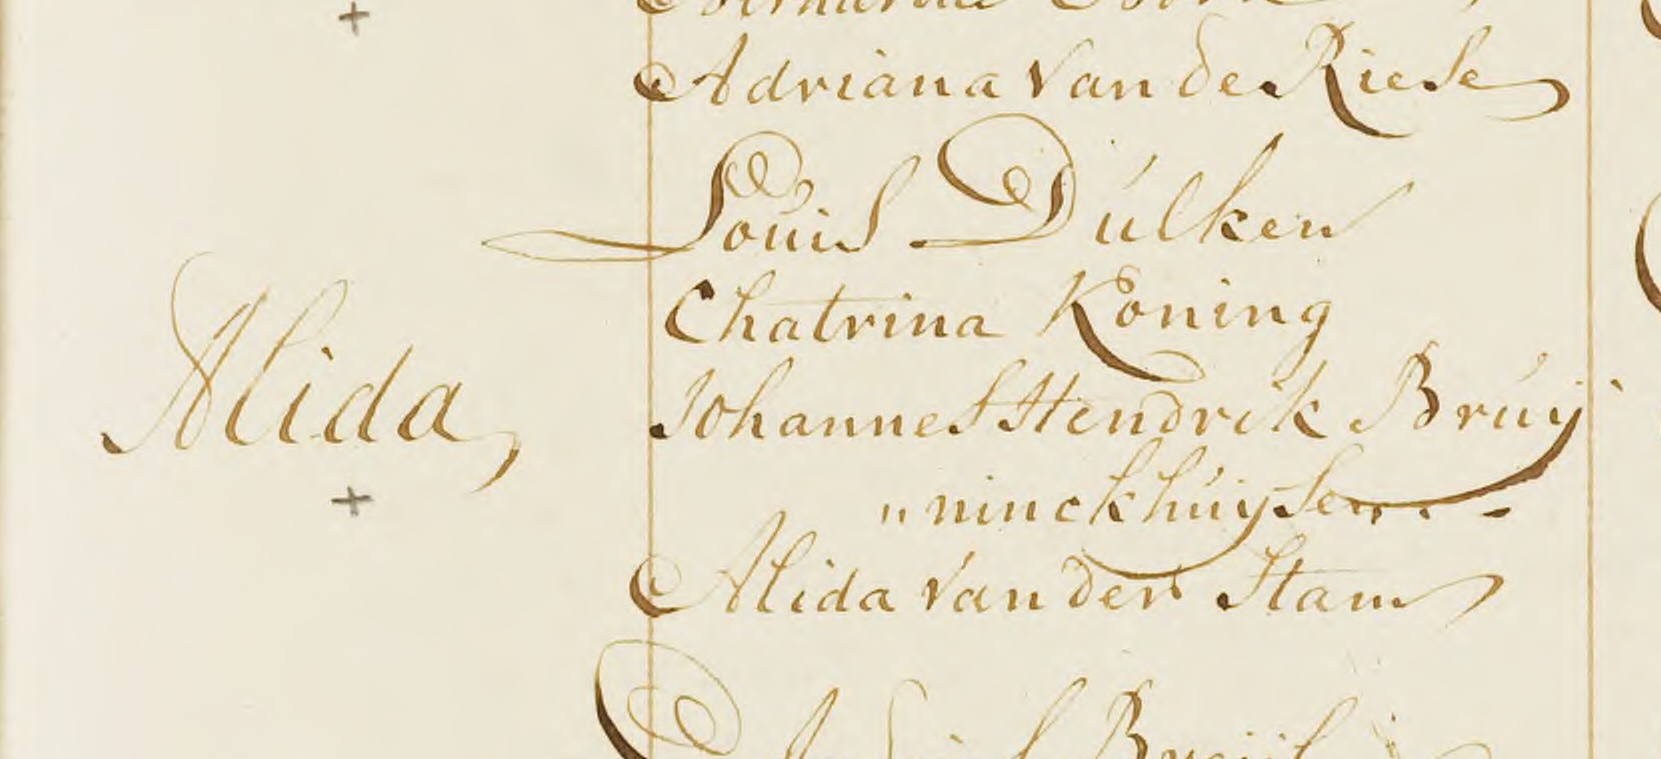 Adriana van de Riese
Louis Dulken
Chatrina Koning
Alida
Johannes Hendrik Bruy
„ninckhuysen
Alida van der Stam